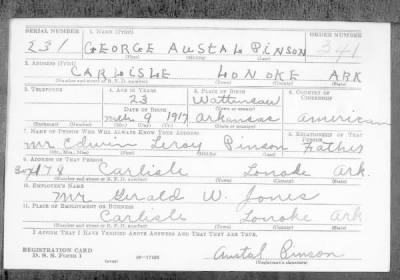 SERIAL NUMBER 1. NAME (Print) ORDER NUMBER
231 GEORGE AUSTAL PINSON 341
(First) (Middle) (Last)
2. ADDRESS (Print)
CARLISLE LONOKE ARK
(Number and street or R. F. D. number) (Town) (County) (State)
3. TELEPHONE 4. AGE IN YEARS 5. PLACE OF BIRTH 6. COUNTRY OF CITIZENSHIP
23 Wattensaw
DATE OF BIRTH (Town or county)
9 1917 Arkansas American
(Exchange) (No.) (Mo.) (Day) (Yr.) (State or country)
7. NAME OF PERSON WHO WILL ALWAYS KNOW YOUR ADDRESS 8. RELATIONSHIP OF THAT PERSON
Mr. Edwin Leroy Pinson Father
(Mr., Mrs., Miss) (First) (Middle) (Last)
9. ADDRESS OF THAT PERSON
Box 178 Carlisle Lonoke Ark.
(Number and street or R. F. D. number) (Town) (County) (State)
10. EMPLOYER'S NAME
Mr. Gerald W. Jones
11. PLACE OF EMPLOYMENT OR BUSINESS
Carlisle Lonoke Ark
(Number and street or R. F. D. number) (Town) (County) (State)
I AFFIRM THAT I HAVE VERIFIED ABOVE ANSWERS AND THAT THEY ARE TRUE.
REGISTRATION CARD
D. S. S. Form 1 (over) 16—17105 Austal Pinson
(Registrant's signature)